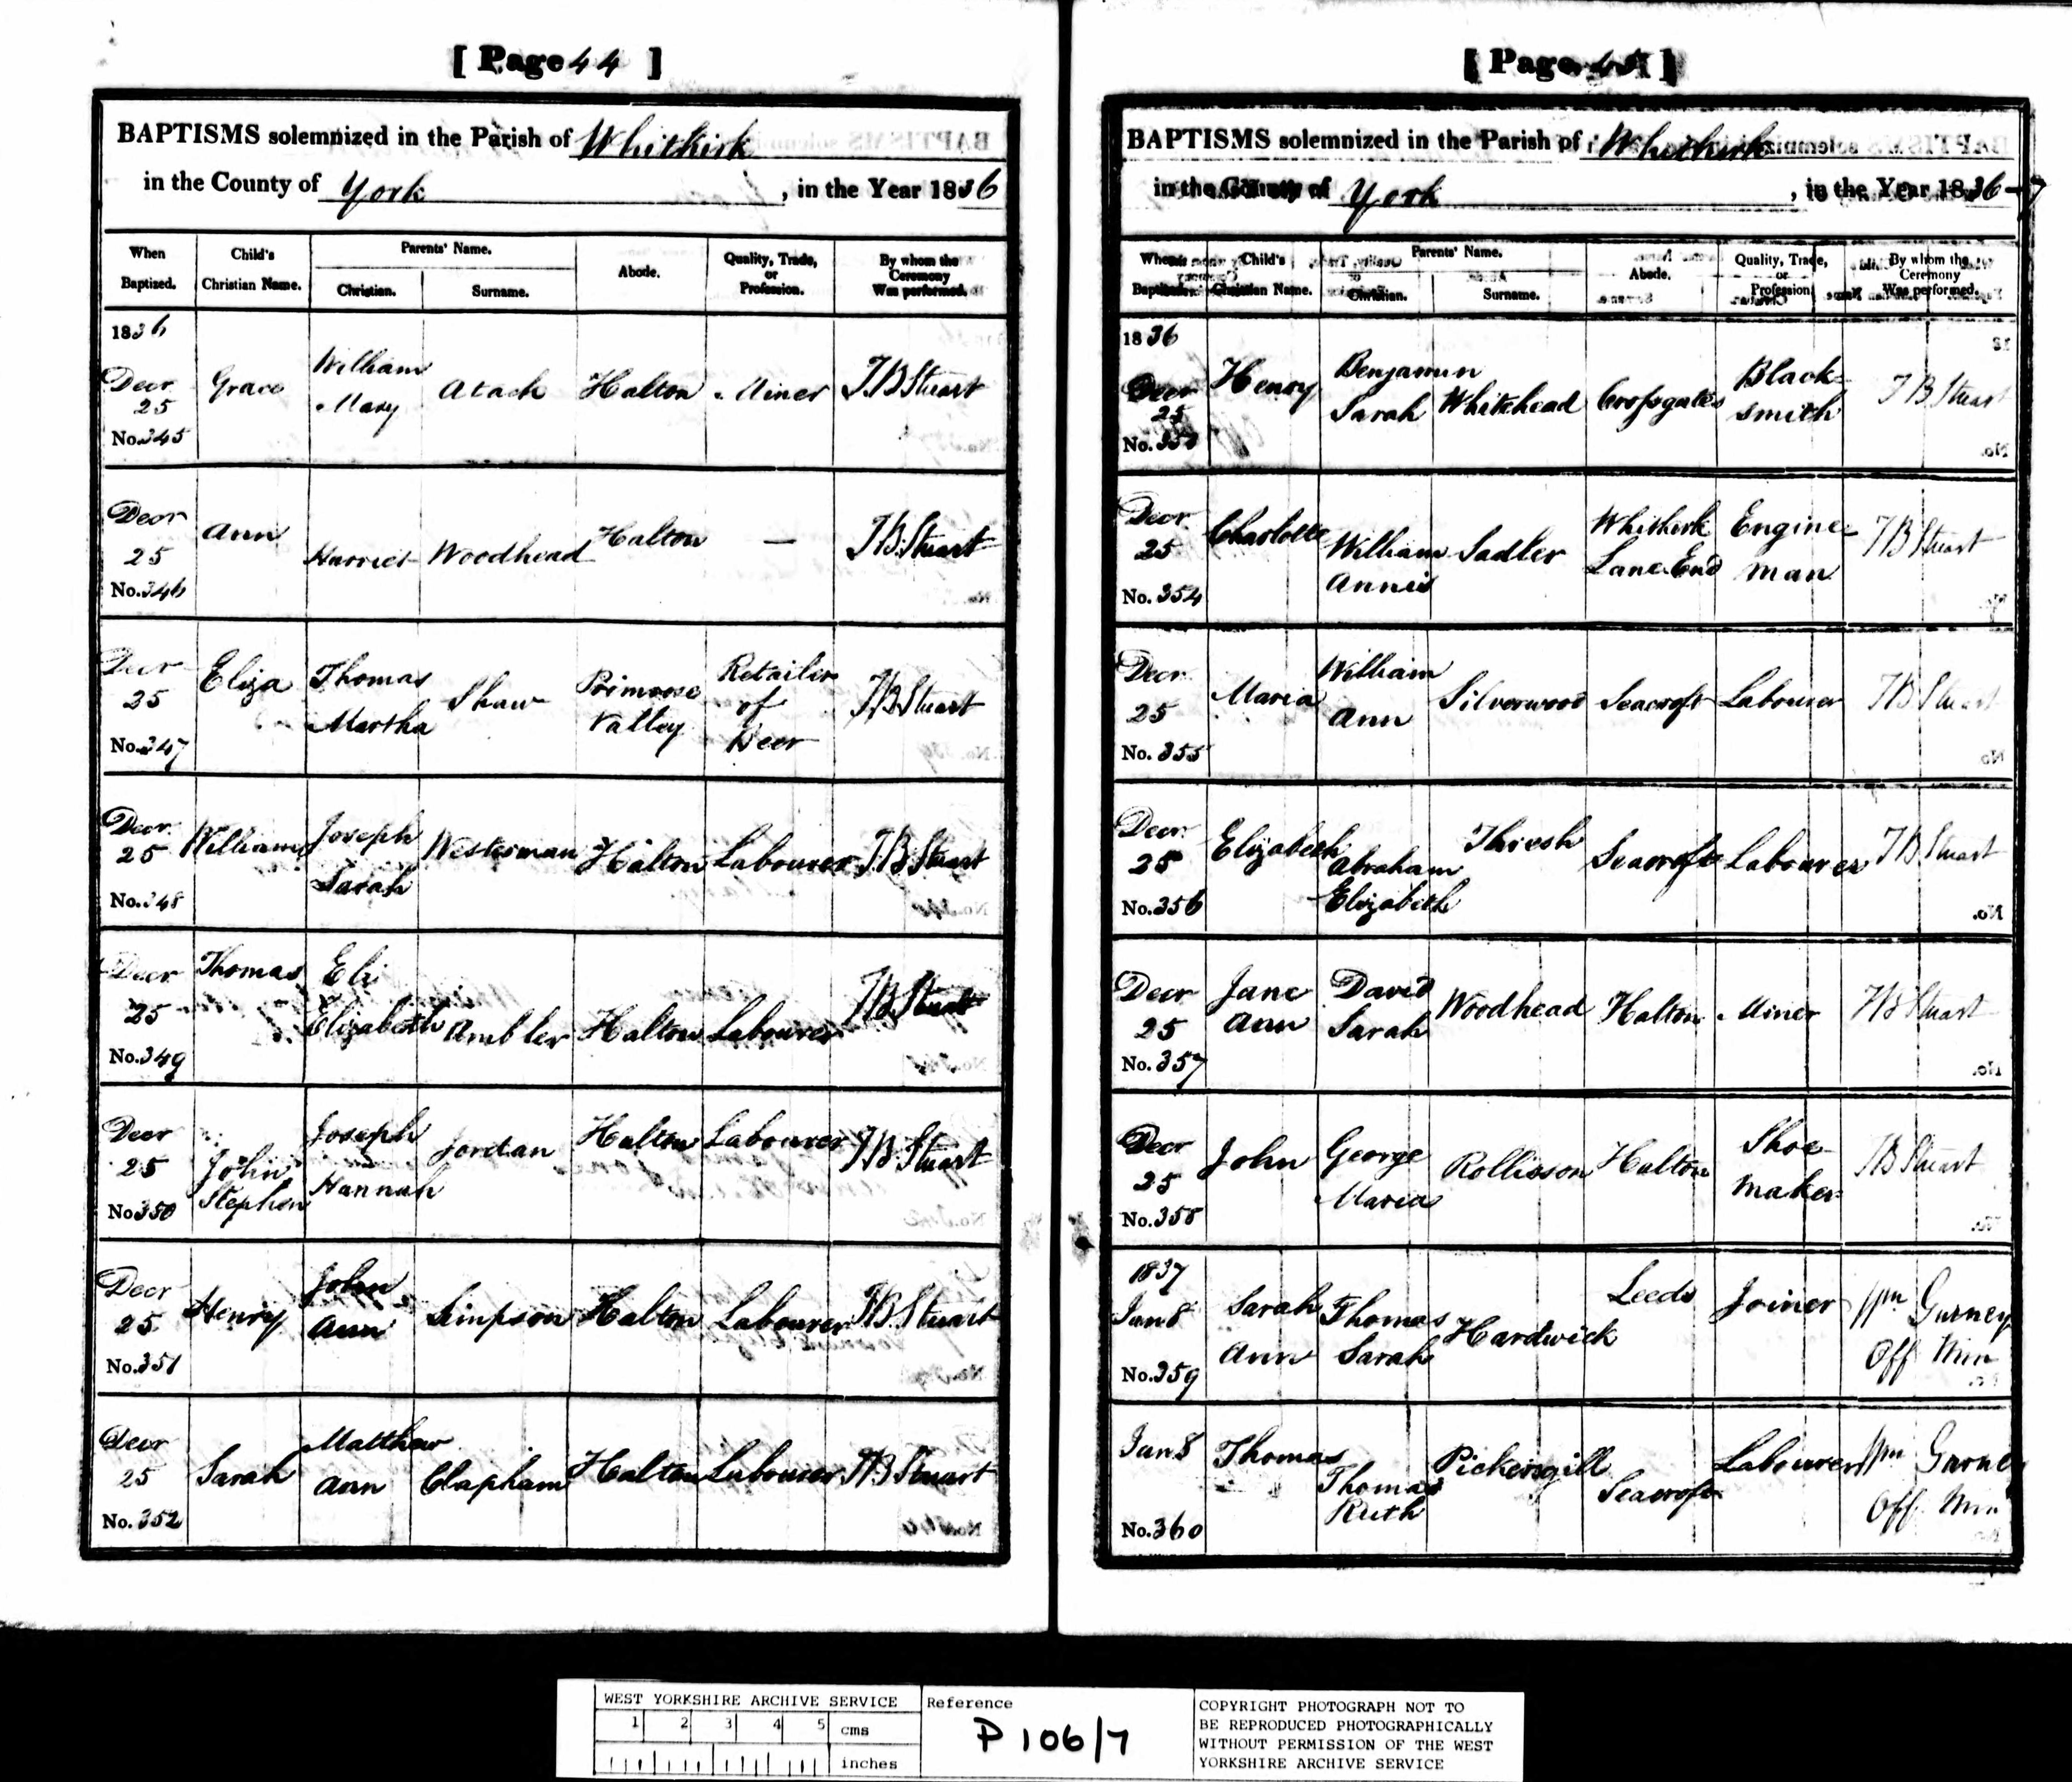 [ Page 44 ]
BAPTISMS solemnized in the Parish of Whitkirk
in the County of York , in the Year 1836
When Baptized. Child's Christian Name. Parents' Name. Christian. Surname. Abode. Quality, Trade, or Profession. By whom the Ceremony Was performed.
1836
Decr 25 No. 345 Grace William Mary Atack Halton Miner T B Stuart
Decr 25 No. 346 Ann Harriet Woodhead Halton — T B Stuart
Decr 25 No. 347 Eliza Thomas Martha Shaw Primrose Valley Retailer of Beer T B Stuart
Decr 25 No. 348 William Joseph Sarah Westerman Halton Labourer T B Stuart
Decr 25 No. 349 Thomas Eli Elizabeth Ambler Halton Labourer T B Stuart
Decr 25 No 350 John Stephen Joseph Hannah Jordan Halton Labourer T B Stuart
Decr 25 No. 351 Henry John Ann Simpson Halton Labourer T B Stuart
Decr 25 No. 352 Sarah Matthew Ann Clapham Halton Labourer T B Stuart
[ Page 45 ]
BAPTISMS solemnized in the Parish of Whitkirk
in the County of York , in the Year 1836-7
When Baptized. Child's Christian Name. Parents' Name. Christian. Surname. Abode. Quality, Trade, or Profession. By whom the Ceremony Was performed.
1836
Decr 25 No. 353 Henry Benjamin Sarah Whitehead Crossgates Black-smith T B Stuart
Decr 25 No. 354 Charlotte William Annis Sadler Whitkirk Lane End Engine-man T B Stuart
Decr 25 No. 355 Maria William Ann Silverwood Seacroft Labourer T B Stuart
Decr 25 No. 356 Elizabeth Abraham Elizabeth Thresh Seacroft Labourer T B Stuart
Decr 25 No. 357 Jane Ann David Sarah Woodhead Halton Miner T B Stuart
Decr 25 No. 358 John George Maria Rollisson Halton Shoe-maker T B Stuart
1837
Jan 8 No. 359 Sarah Ann Thomas Sarah Hardwick Leeds Joiner Wm Gurney Off Min
Jan 8 No. 360 Thomas Thomas Ruth Pickersgill Seacroft Labourer Wm Gurney Off. Min
WEST YORKSHIRE ARCHIVE SERVICE
1 2 3 4 5 cms
inches
Reference
P 106/7
COPYRIGHT PHOTOGRAPH NOT TO
BE REPRODUCED PHOTOGRAPHICALLY
WITHOUT PERMISSION OF THE WEST
YORKSHIRE ARCHIVE SERVICE